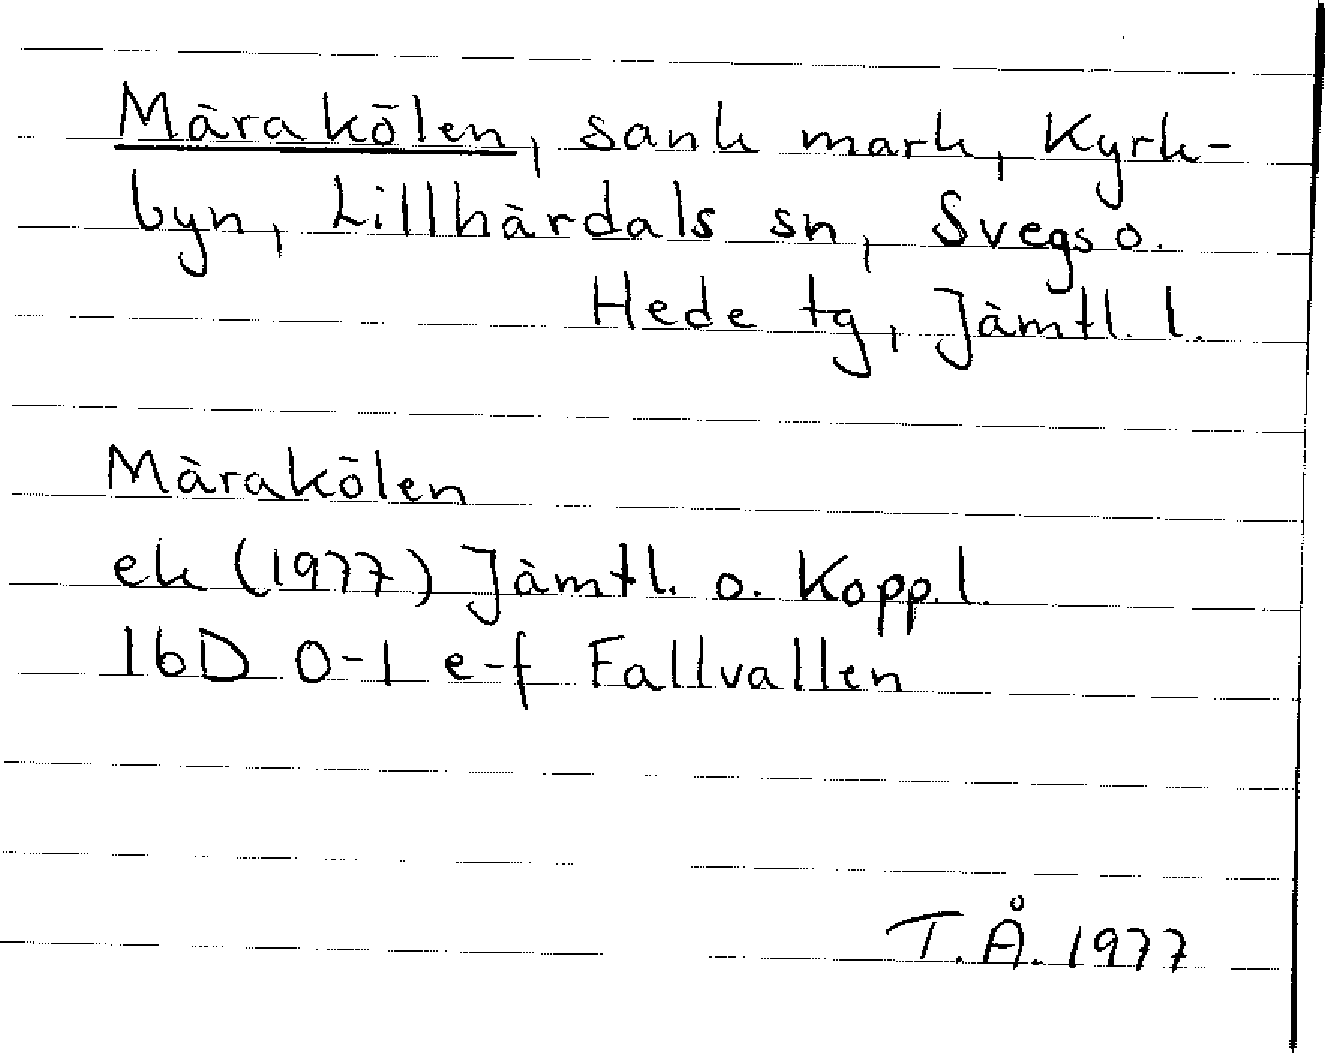 Märakölen, sank mark, Kyrk-
byn, Lillhärdals sn, Svegs o.
Hede tg, Jämtl. l.
Märakölen
ek (1977) Jämtl. o. Kopp. l.
16D 0-1 e-f Fallvallen
T.Å. 1977